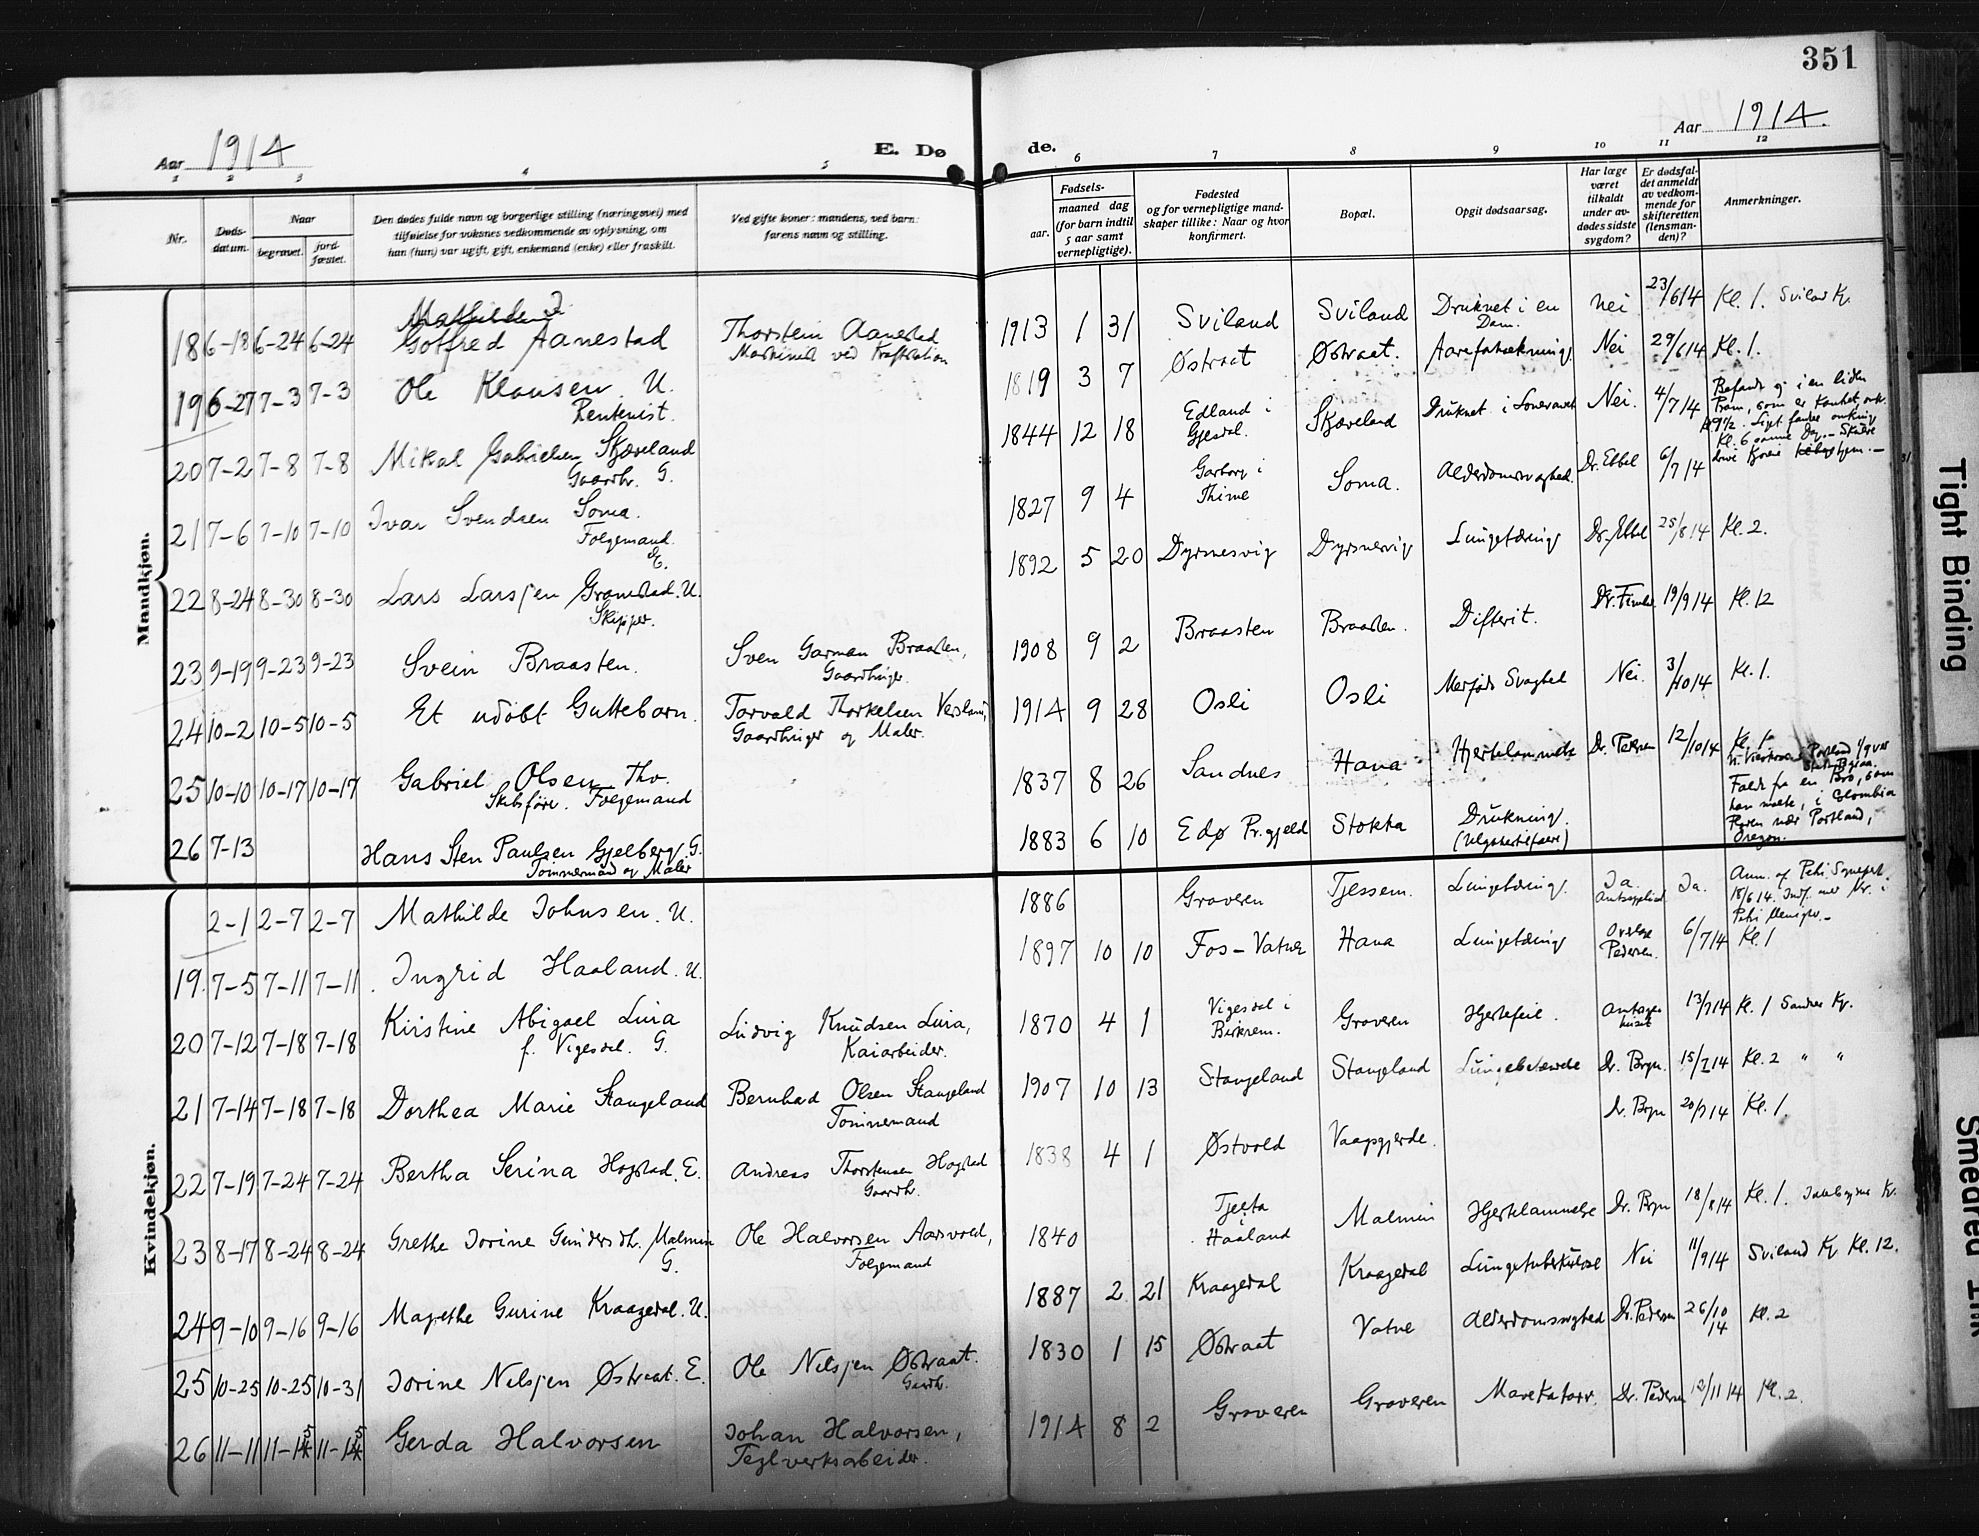 351
Aar 1914
E. Dø
de.
Aar 1914.
1 2 3 4 5 6 7 8 9 10 11 12
Nr.
Døds-datum.
Naar
begravet.
jord-fæstet.
Den dødes fulde navn og borgerlige stilling (næringsvei) med
tilføielse for voksnes vedkommende av oplysning, om
han (hun) var ugift, gift, enkemand (enke) eller fraskilt.
Ved gifte koner: mandens, ved barn:
farens navn og stilling.
Fødsels-
aar.
maaned dag
(for barn indtil
5 aar samt
vernepligtige).
Fødested
og for vernepligtige mand-
skaper tillike: Naar og hvor
konfirmert.
Bopæl.
Opgit dødsaarsag.
Har læge
været
tilkaldt
under av-
dødes sidste
sygdom?
Er dødsfal-
det anmeldt
av vedkom-
mende for
skifteretten
(lensman-
den)?
Anmerkninger.
Mandkjøn.
18 6-18 6-24 6-24 Gotfred Aanestad Thorstein Aanestad 1913 1 31 Sviland Sviland Druknet i en Dam. Nei 23/6 14 Kl. 1.
19 6-27 7-3 7-3 Ole Klausen U. Rentenist. 1819 3 7 Østraat Østraat. Nei 29/6 14 Kl. 1.
20 7-2 7-8 7-8 Mikal Gabrielsen Skjæveland Gaardbr. G. 1844 12 18 Edland i Gjesdal. Skjæveland Druknet i Nei. 4/7 14
21 7-6 7-10 7-10 Ivar Svendsen Soma. Folgemand. E. 1827 9 4 Garborg i Thime Soma. Alderdomssvaghed. Dr. Ebbel 6/7 14
22 8-24 8-30 8-30 Lars Larsen Gramstad. U. Skipper. 1892 5 20 Dyrsnesvig Dyrsnesvig Lungetæring Dr. Ebbel 25/8 14 Kl. 2.
23 9-19 9-23 9-23 Svein Braasten. Sven Garman Braasten, Gaardbruger. 1908 9 2 Braasten Braasten. Difterit. 19/9 14 Kl. 12
24 10-2 10-5 10-5 Et udøbt Guttebarn. Torvald Thorkelsen Gaardbruger og Maler. 1914 9 28 Osli Osli Medfødt Svaghet Nei. 3/10 14 Kl. 1.
25 10-10 10-17 10-17 Gabriel Olsen Skibsfører. Folgemand 1837 8 26 Sandnes Hana Hjertelammelse Dr. Pedersen 12/10 14
26 7-13 Hans Sten Paulsen Gjelberg. G. Tømmermand og Maler 1883 6 10 Edø Pr.gjeld Stokka Drukning. Faldt fra en Bro, som han malte, i Colombia nær Portland, Oregon.
Kvindekjøn.
2-1 2-7 2-7 Mathilde Johnsen. U. 1886 Graveren Tjessem. Lungetæring. Ja. Ja.
19 7-5 7-11 7-11 Ingrid Haaland. U. 1897 10 10 Fos-Vatne Hana Lungetæring Pedersen. 6/7 14 Kl. 1
20 7-12 7-18 7-18 Kirstine Abigael Lura f. Vigesdal. G. Ludvig Knudsen Lura, Kaiarbeider. 1870 4 1 Vigesdal i Birkrem. Graveren Hjertefeil. 13/7 14 Kl. 1 Sandnes Kg.
21 7-14 7-18 7-18 Dorthea Marie Stangeland Bernhad Olsen Stangeland Tømmermand 1907 10 13 Stangeland Stangeland Dr. Bryn. 15/7 14 Kl. 2 " "
22 7-19 7-24 7-24 Bertha Serina Hogstad. E. Andreas Thorstensen Hogstad Gaardbr. 1838 4 1 Østvold Vaagsgjerde. Dr. Bryn 20/7 14 Kl. 1.
23 8-17 8-24 8-24 Grethe Jorine Gundersdtr. Malmin G. Ole Halvorsen Aasvold, Folgemand 1840 Tjelta i Haaland Malmin Hjertelammelse Dr. Bryn 18/8 14 Kl. 1.
24 9-10 9-16 9-16 Magethe Gurine Kraagedal. U. 1887 2 21 Kraagedal Kraagedal Lungetuberkulose Nei 11/9 14 Sviland Kg Kl. 12.
25 10-25 10-25 10-31 Jorine Nilsen Østraat. E. Ole Nilsen Østraat. Gardbr. 1830 1 15 Østraat Vatne Alderdomssvaghed Dr. Pedersen 26/10 14 Kl. 2
26 11-11 11-15 11-15 Gerda Halvorsen Johan Halvorsen, Teglverksarbeider. 1914 8 2 Graveren Graveren Mavekatarr. Dr. Pedersen 12/11 14 Kl. 2.
Tight Binding
Smeared Ink